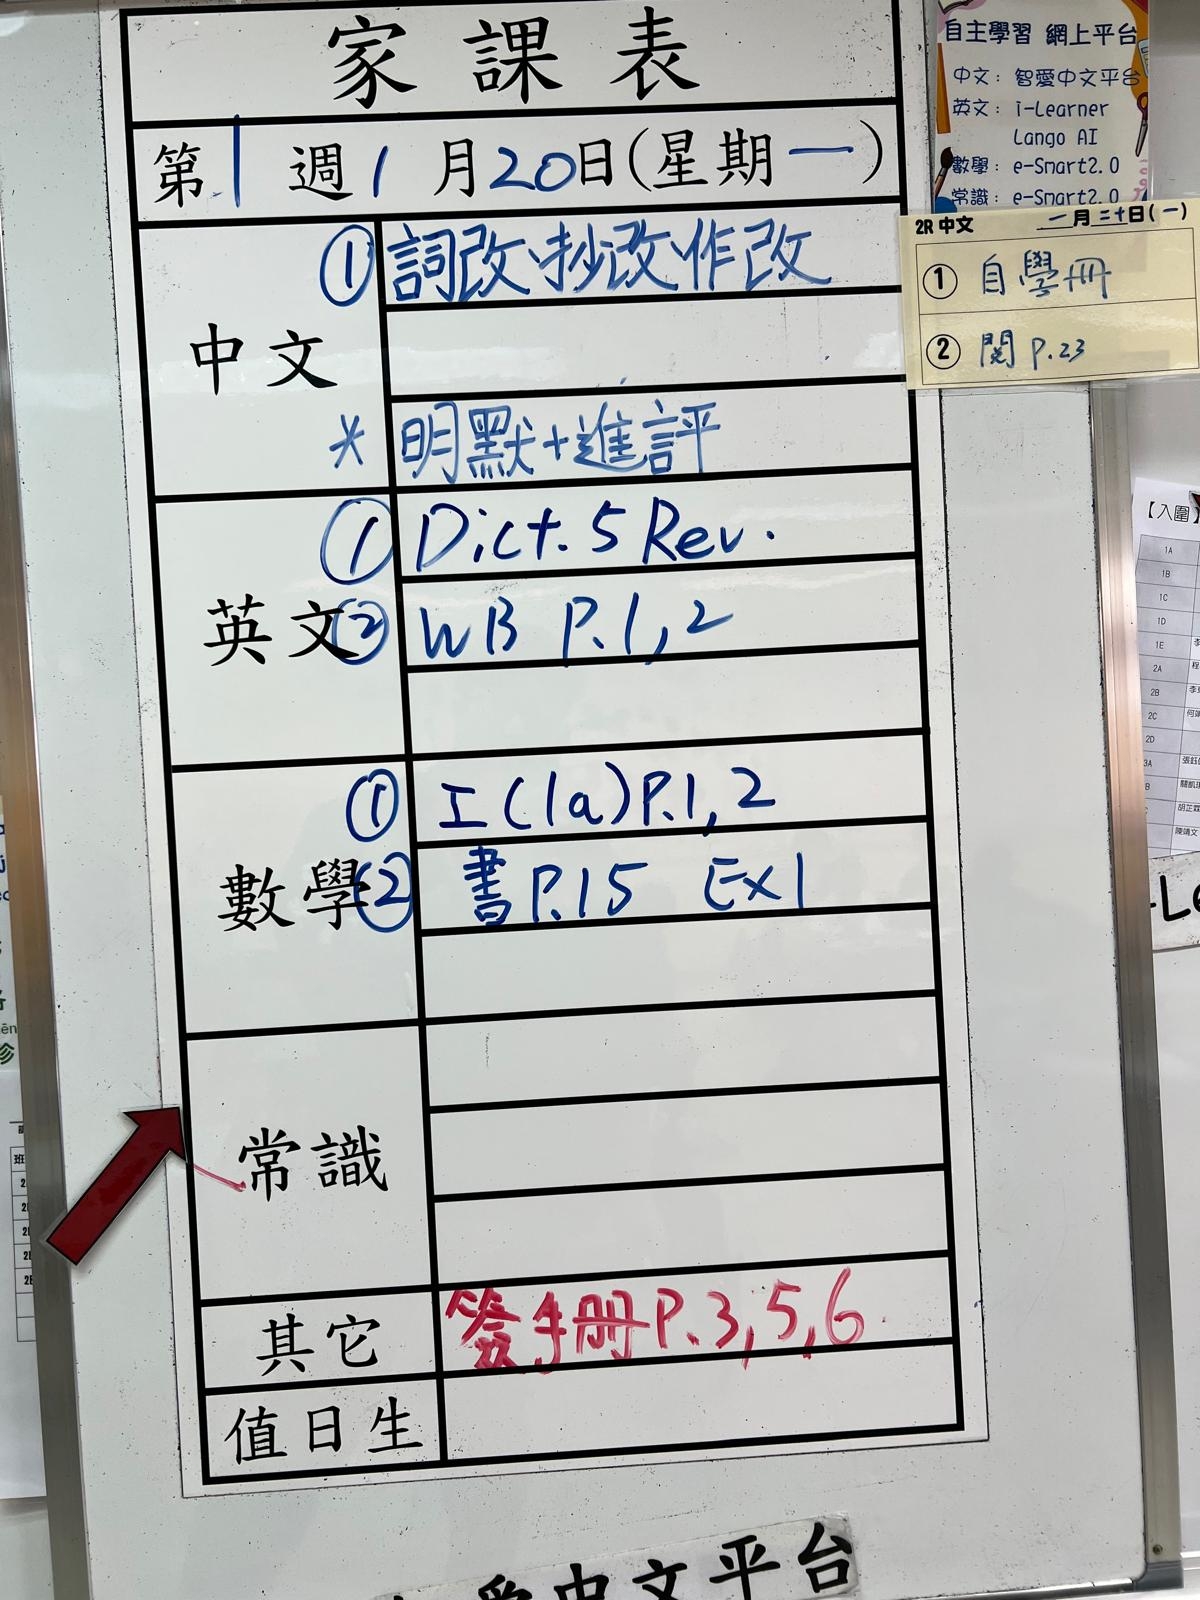 家課表
第1週1月20日(星期一)
中文
① 詞改、抄改、作改
* 明默+進評
英文
① Dict. 5 Rev.
② WB P.1, 2
數學
① 工(1a)P.1, 2
② 書P.15 Ex1
常識
其它
簽手冊P.3,5,6
值日生
自主學習 網上平台
中文：智愛中文平台
英文：i-Learner
Lango AI
數學：e-Smart2.0
常識：e-Smart2.0
2R 中文 一月二十日(一)
① 自學冊
② 閱 P.23
【入圍】
1A
1B
1C
1D
1E
2A
2B
2C
2D
愛中文平台